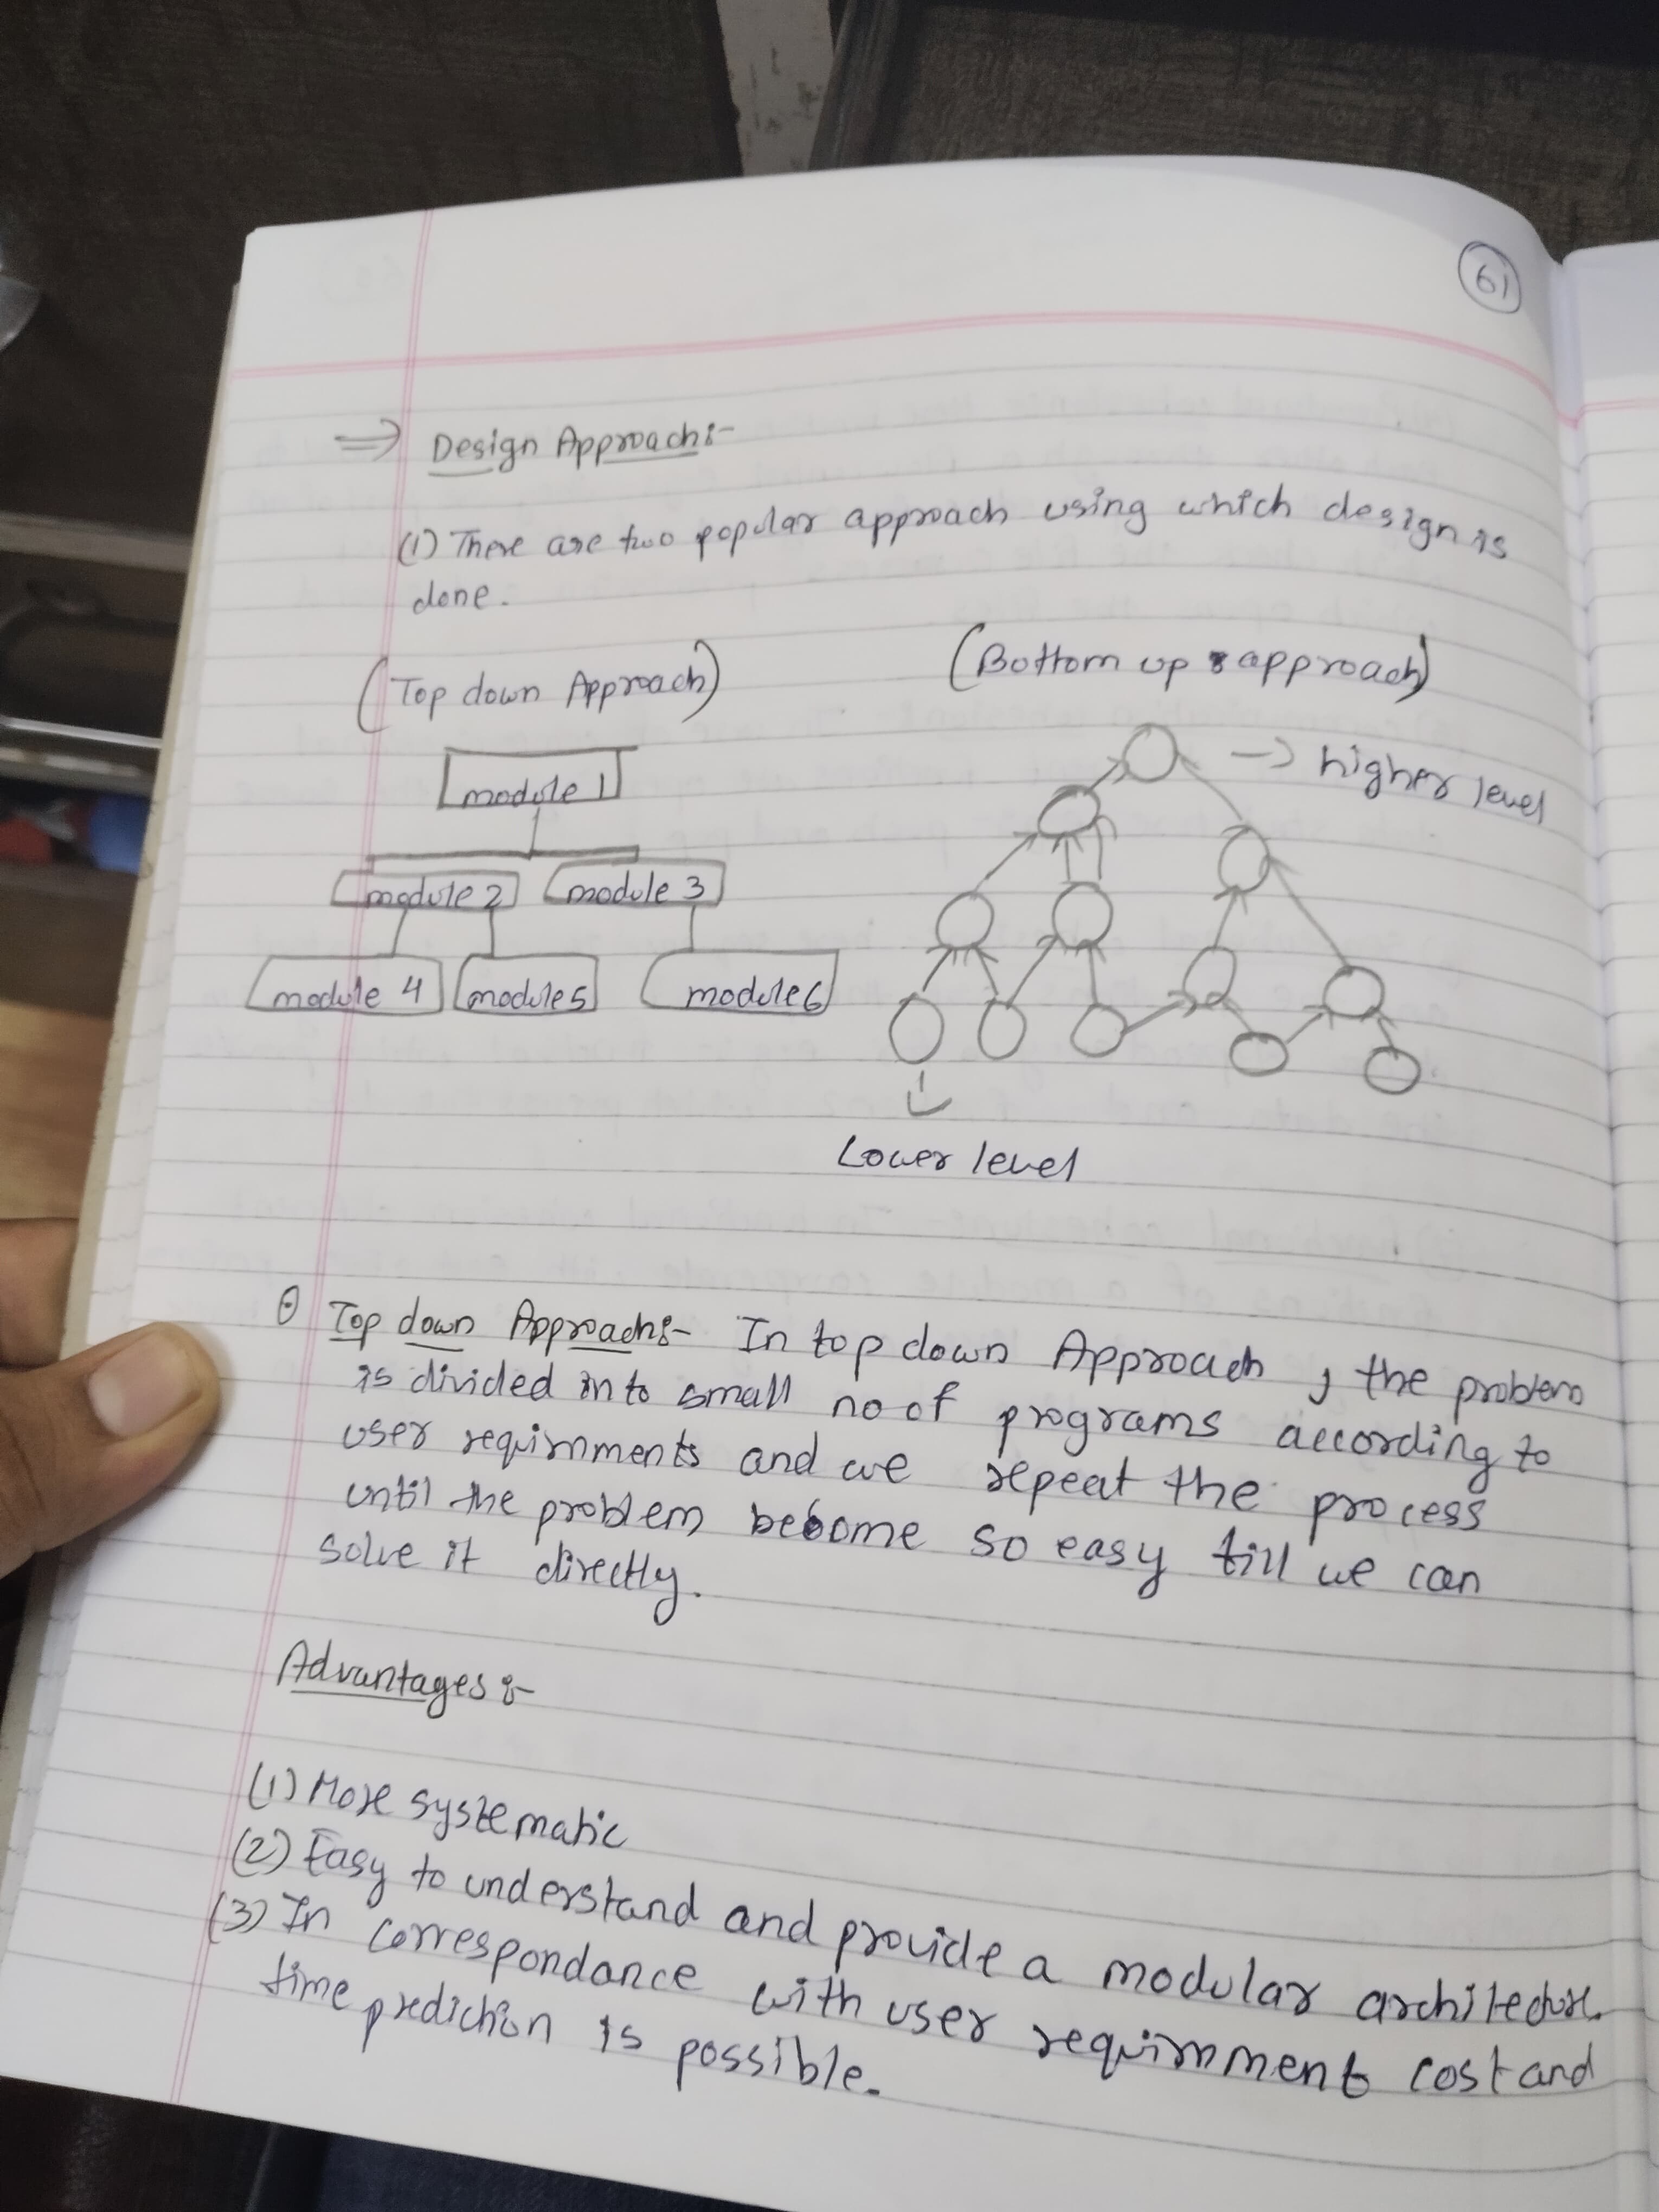 61
⇒ Design Approach:-
(1) There are two popular approach using which design is
done.
(Top down Approach)
(Bottom up approach)
module 1
→ higher level
module 2
module 3
module 4
module5
module6
Lower level
Top down Approach:- In top down Approach, the problem
is divided in to small no of programs according to
user requirnments and we repeat the process
until the problem become so easy till we can
solve it directly.
Advantages :-
(1) More systematic
(2) Easy to understand and provide a modular architecture.
(3) In correspondance with user requirnment cost and
time prediction is possible.